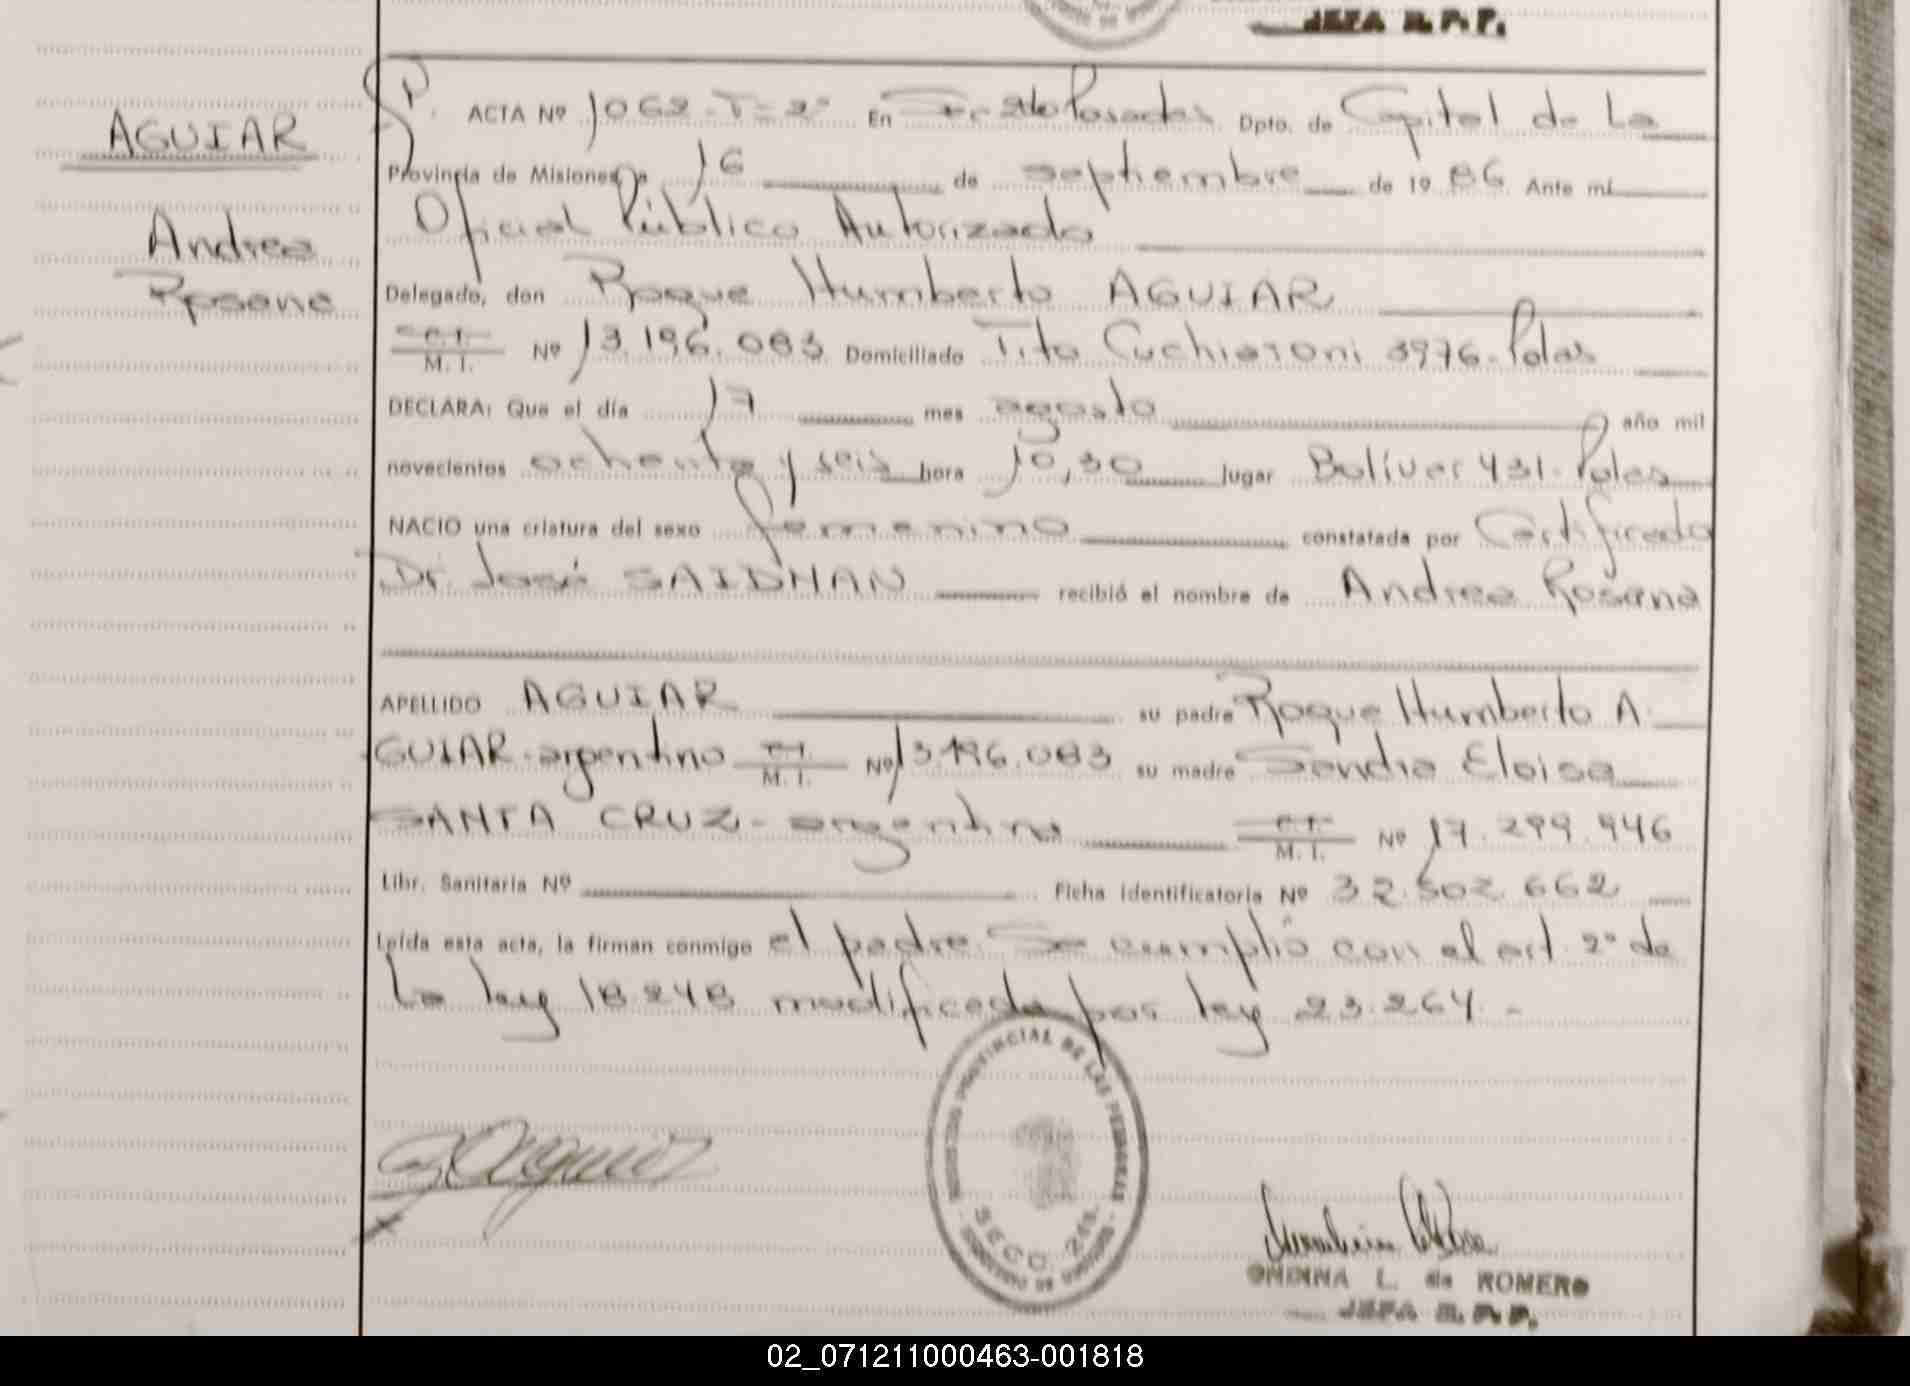 JEFA R.P.P.
AGUIAR
Andrea
Rosana
ACTA Nº 1062-T=2º En Sec 2da Posadas Dpto. de Capital de La
Provincia de Misiones a 16 de septiembre de 1986 Ante mí
Oficial Público Autorizado
Delegado, don Roque Humberto AGUIAR
C.I. M.I. Nº 13.196.083 Domiciliado Tito Cuchiaroni 3976-Pdas
DECLARA: Que el día 17 mes agosto año mil
novecientos ochenta y seis hora 10,30 lugar Bolívar 431-Pdas
NACIO una criatura del sexo femenino constatada por Certificado
Dr. José SAIDMAN recibió el nombre de Andrea Rosana
APELLIDO AGUIAR su padre Roque Humberto A
GUIAR-argentino M.I. Nº 13.196.083 su madre Sandra Eloisa
SANTA CRUZ-argentina C.I. M.I. Nº 17.299.946
Libr. Sanitaria Nº Ficha Identificatoria Nº 32.502.662
Leída esta acta, la firman conmigo el padre. Se cumplió con el art. 2º de
La ley 18.248 modificada por ley 23.264.-
PROVINCIAL DE LAS PERSONAS
SECC. 2da.
ONDINA L. de ROMERO
JEFA R.P.P.
02_071211000463-001818